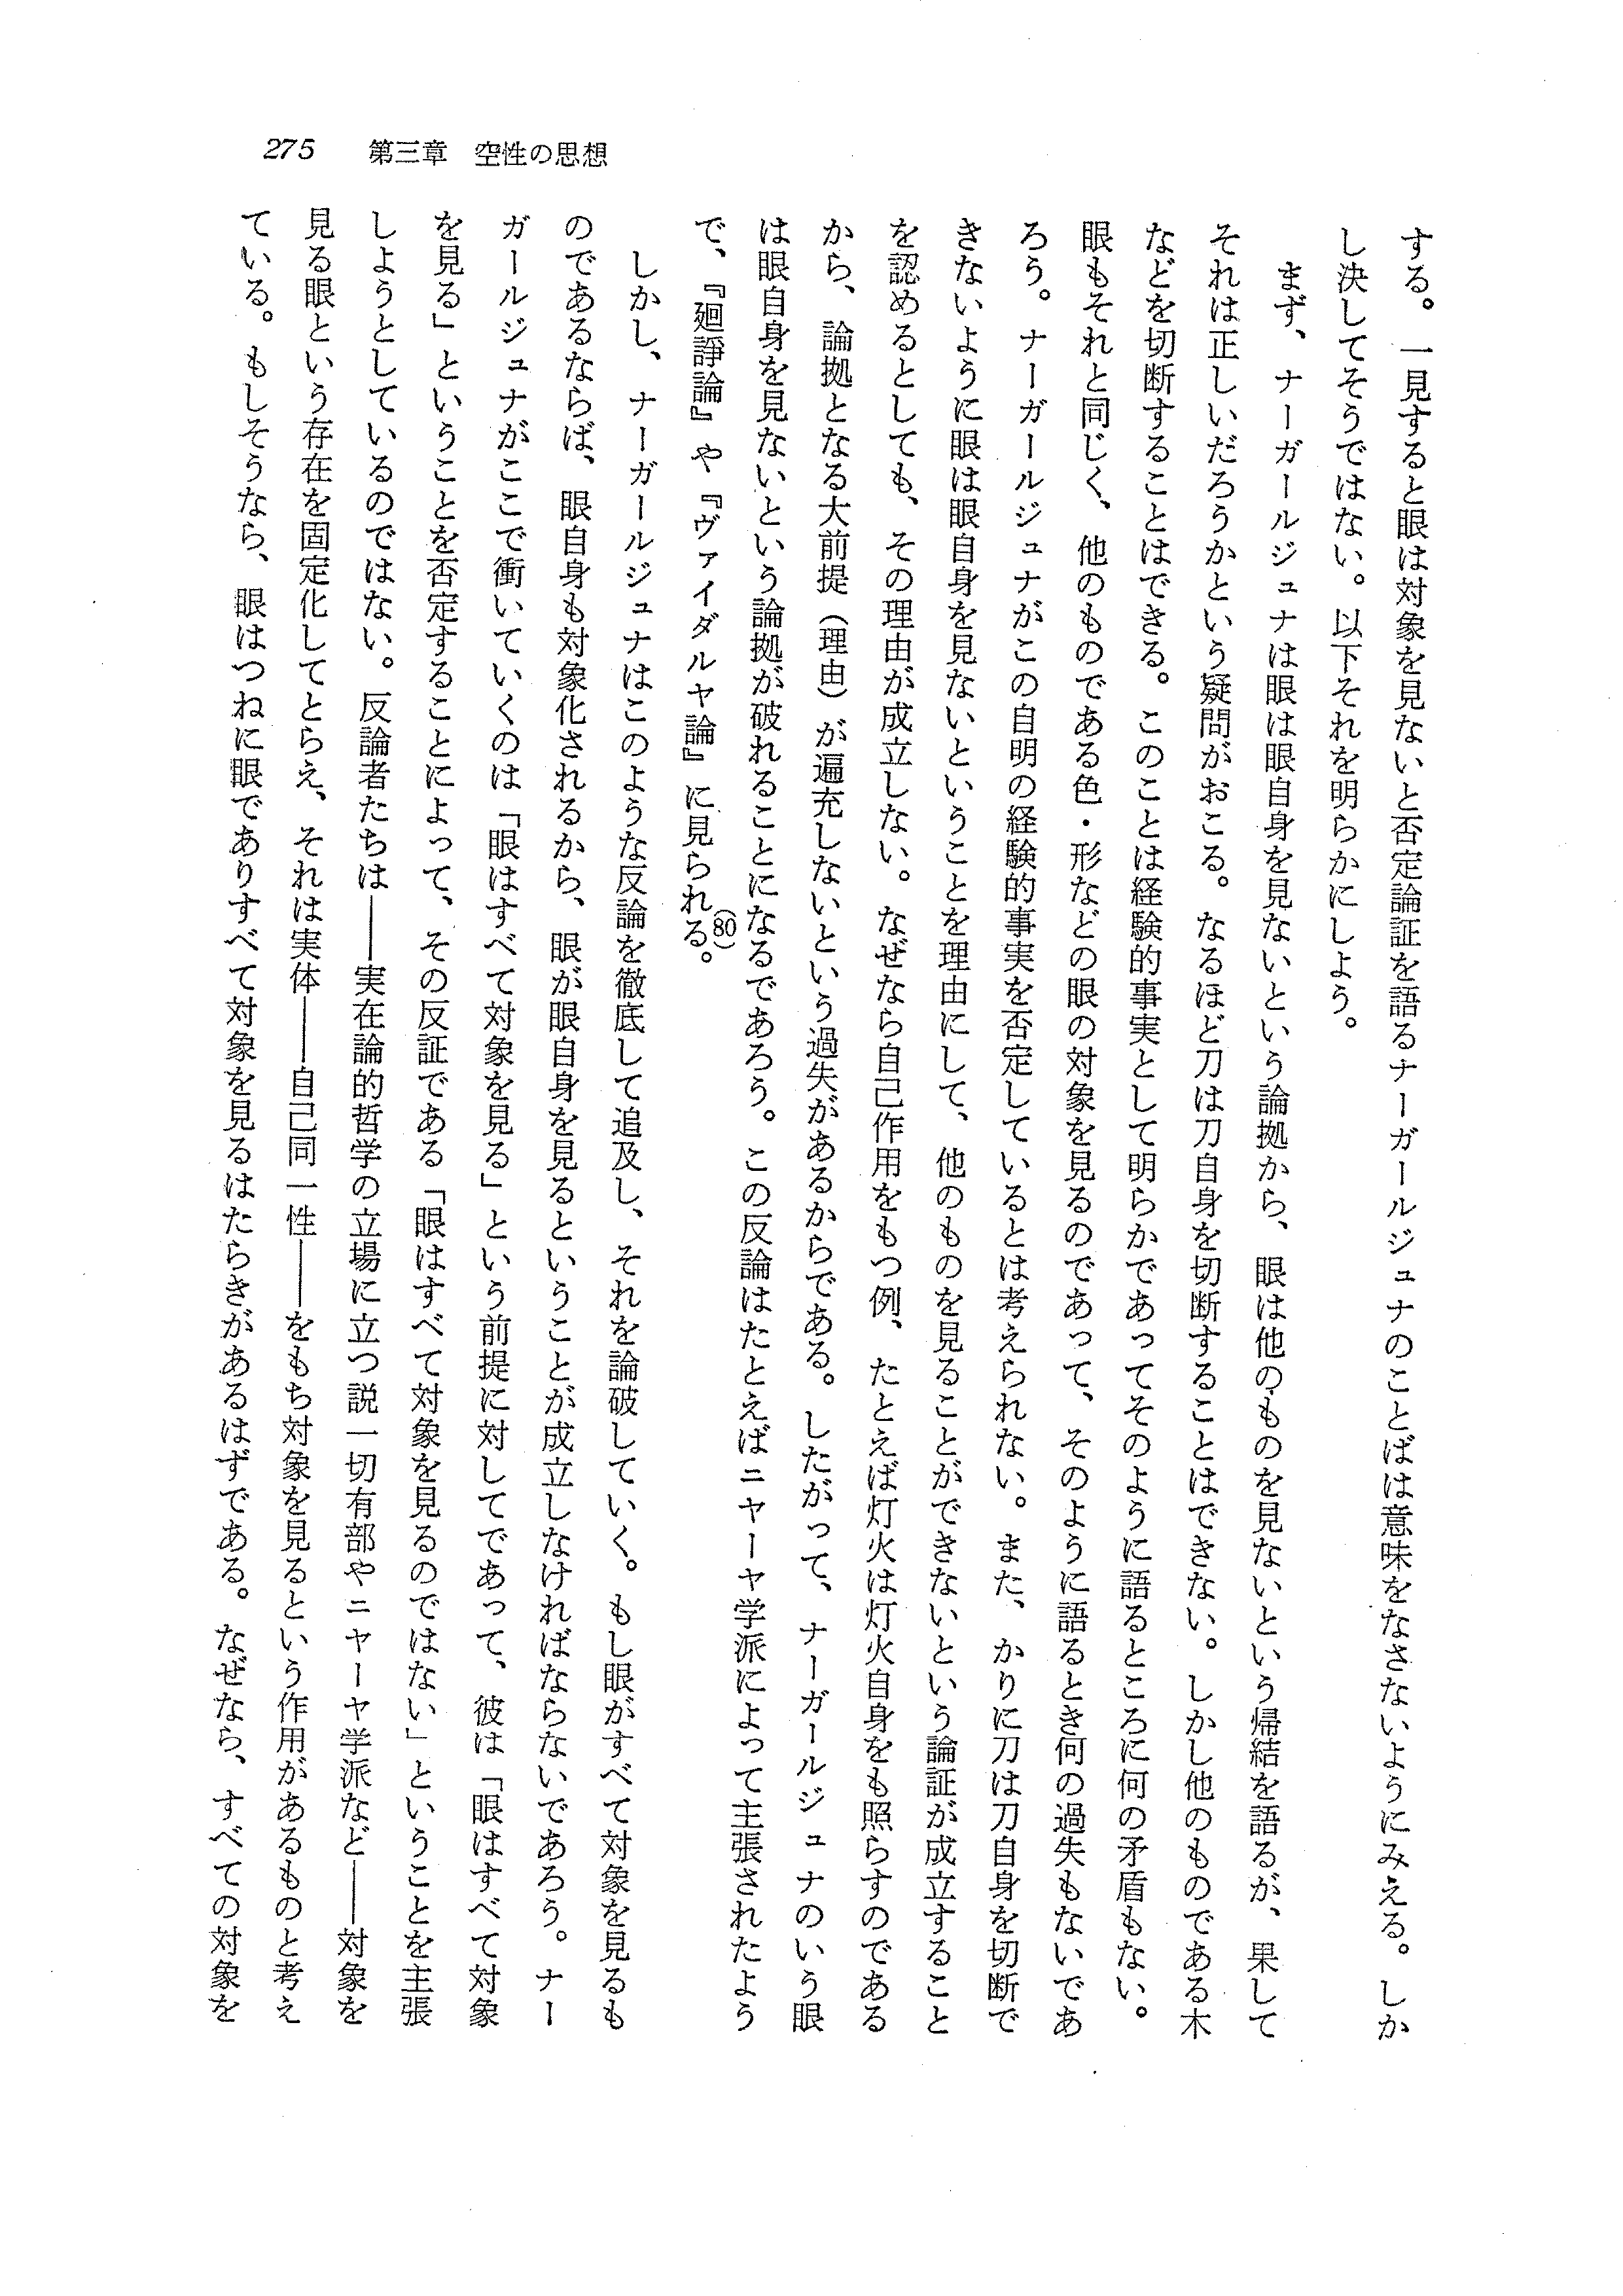 275　第三章　空性の思想
する。一見すると眼は対象を見ないと否定論証を語るナーガールジュナのことばは意味をなさないようにみえる。しか
し決してそうではない。以下それを明らかにしよう。
　まず、ナーガールジュナは眼は眼自身を見ないという論拠から、眼は他のものを見ないという帰結を語るが、果して
それは正しいだろうかという疑問がおこる。なるほど刀は刀自身を切断することはできない。しかし他のものである木
などを切断することはできる。このことは経験的事実として明らかであってそのように語るところに何の矛盾もない。
眼もそれと同じく、他のものである色・形などの眼の対象を見るのであって、そのように語るとき何の過失もないであ
ろう。ナーガールジュナがこの自明の経験的事実を否定しているとは考えられない。また、かりに刀は刀自身を切断で
きないように眼は眼自身を見ないということを理由にして、他のものを見ることができないという論証が成立すること
を認めるとしても、その理由が成立しない。なぜなら自己作用をもつ例、たとえば灯火は灯火自身をも照らすのである
から、論拠となる大前提（理由）が遍充しないという過失があるからである。したがって、ナーガールジュナのいう眼
は眼自身を見ないという論拠が破れることになるであろう。この反論はたとえばニヤーヤ学派によって主張されたよう
で、『廻諍論』や『ヴァイダルヤ論』に見られる。(80)
　しかし、ナーガールジュナはこのような反論を徹底して追及し、それを論破していく。もし眼がすべて対象を見るも
のであるならば、眼自身も対象化されるから、眼が眼自身を見るということが成立しなければならないであろう。ナー
ガールジュナがここで衝いていくのは「眼はすべて対象を見る」という前提に対してであって、彼は「眼はすべて対象
を見る」ということを否定することによって、その反証である「眼はすべて対象を見るのではない」ということを主張
しようとしているのではない。反論者たちは――実在論的哲学の立場に立つ説一切有部やニヤーヤ学派など――対象を
見る眼という存在を固定化してとらえ、それは実体――自己同一性――をもち対象を見るという作用があるものと考え
ている。もしそうなら、眼はつねに眼でありすべて対象を見るはたらきがあるはずである。なぜなら、すべての対象を